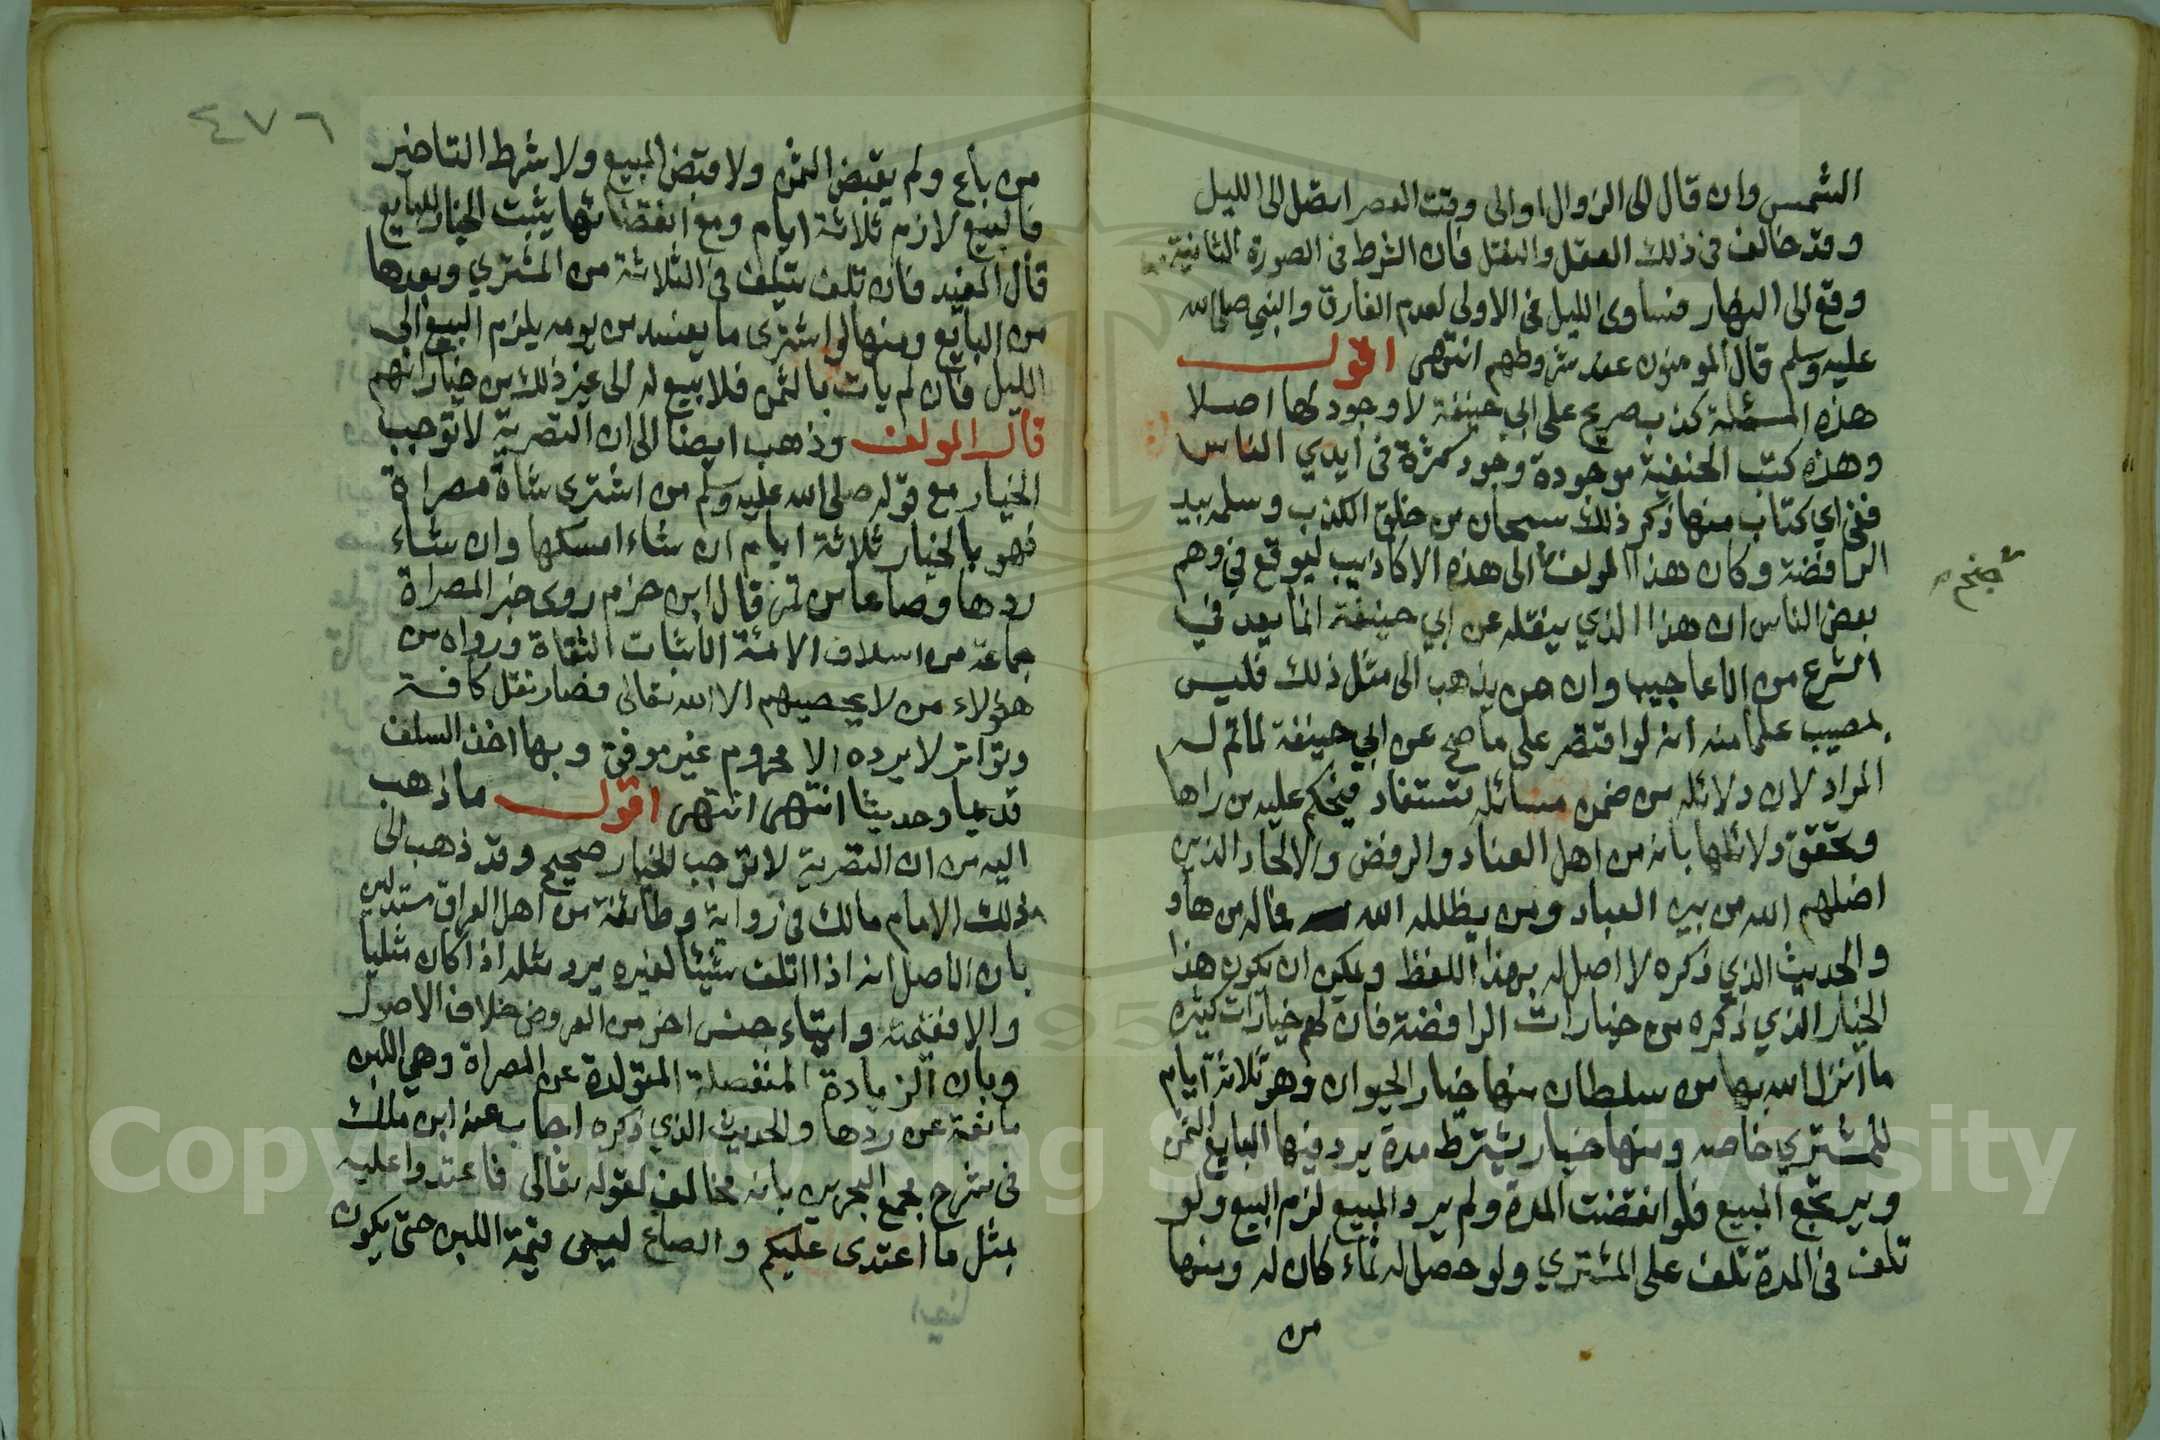 الشمس وان قال الى الزوال او الى وقت العصر اتصل الى الليل
وقد خالف في ذلك العقل والنقل فان الشرط في الصورة الثانية
وقع الى النهار فساوى الليل في الاولى لعدم الفارق والنبي صلى الله
عليه وسلم قال المومنون عند شروطهم انتهى اقول
هذه المسئلة كذب صريح على ابي حنيفة لا وجود لها اصلا
وهذه كتب الحنفية موجودة وجود كثرة في ايدي الناس
ففي اي كتاب منها ذكر ذلك سبحان من خلق الكذب وسلمه بيد
الرافضة وكان هذا المولف الى هذه الاكاذيب ليوقع في وهم
جنح
بعض الناس ان هذا الذي ينقله عن ابي حنيفة انما يعد في
الشرع من الاعاجيب وان من يذهب الى مثل ذلك فليس
بمصيب علما منه انه لو اقتصر على ما صح عن ابي حنيفة لما تم له
المراد لان دلائله من ضمن مسائله تستفاد فيحكم عليه من راها
وتحقق دلائلها بانه من اهل العناد والرفض والالحاد الذين
اضلهم الله من بين العباد ومن يظلله الله فماله من هاد
والحديث الذي ذكره لا اصل له بهذا اللفظ ويمكن ان يكون هذا
الخيار الذي ذكره من خيارات الرافضة فان لهم خيارات كثيرة
ما انزل الله بها من سلطان منها خيار الحيوان وهو ثلاثة ايام
للمشتري خاصه ومنها خيار يشترط مدة يرد فيها البايع الثمن
ويرتجع المبيع فلو انقضت المدة ولم يرد المبيع لزم البيع ولو
تلف في المدة تلف على المشتري ولو حصل له نماء كان له ومنها
من
٤٧٦
من باع ولم يقبض الثمن ولا قبض المبيع ولا شرط التاخير
فالبيع لازم ثلاثة ايام ومع انقضائها يثبت الخيار للبايع
قال المفيد فان تلف يتلف في الثلاثة من المشتري وبعدها
من البايع ومنها لو اشترى ما يفسد من يومه يلزم البيع الى
الليل فان لم يات بالثمن فلا بيع له الى غير ذلك من خياراتهم
قال المولف وذهب ايضا الى ان التصرية لا توجب
الخيار مع قوله صلى الله عليه وسلم من اشترى شاة مصراة
فهو بالخيار ثلاثة ايام ان شاء امسكها وان شاء
ردها وصاعا من تمر قال ابن حزم روى خبر المصراة
جماعة من اسلاف الائمة الاثبات الثقاة ورواه من
هؤلاء من لا يحصيهم الا الله تعالى فصار نقل كافة
وتواتر لا يرده الا محروم غير موفق وبها اخذ السلف
قديما وحديثا انتهى انتهى اقول ما ذهب
اليه من ان التصرية لا توجب الخيار صحيح وقد ذهب الى
ذلك الامام مالك في رواية وطائفة من اهل العراق مستدلين
بان الاصل انه اذا اتلف شيئا لغيره يرد مثله اذا كان مثليا
والا فقيمته وايتاء جنس اخر من العروض خلاف الاصول
وبان الزيادة المنفصلة المتولدة عن المصراة وهي اللبن
مانعة عن ردها والحديث الذي ذكره اجاب عنه ابن ملك
في شرح مجمع البحرين بانه مخالف لقوله تعالى فاعتدوا عليه
بمثل ما اعتدى عليكم والصاع ليس قيمة اللبن حتى يكون